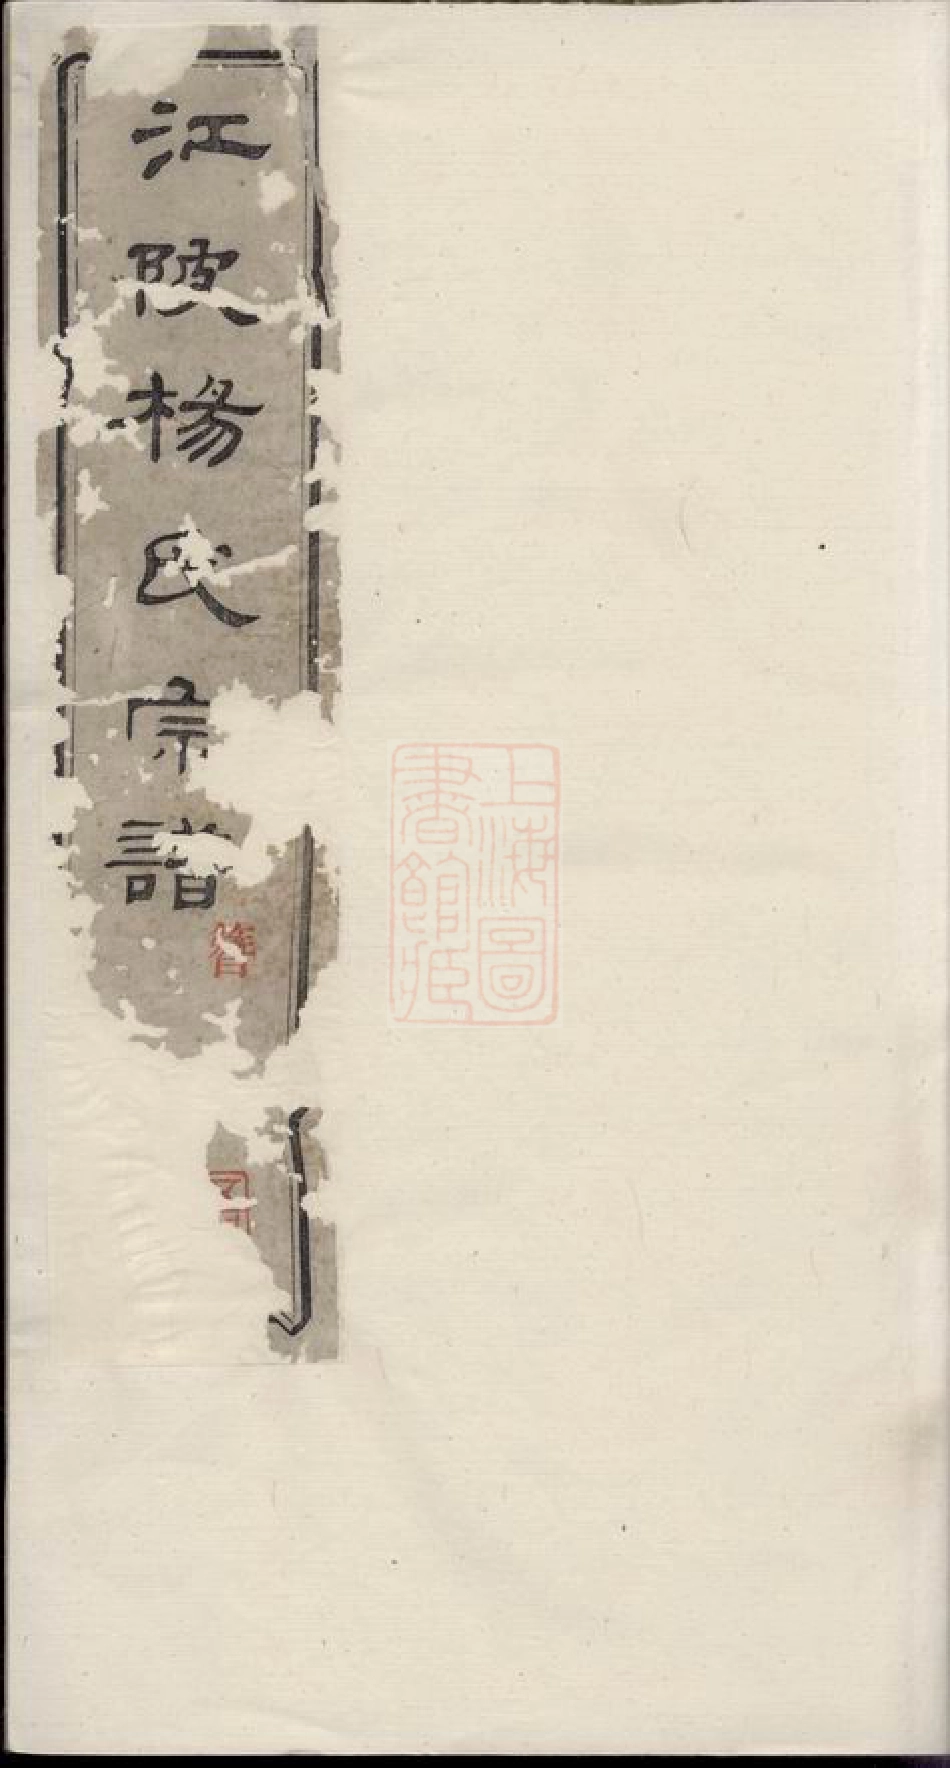 江陂楊氏宗譜
上海圖
書館藏